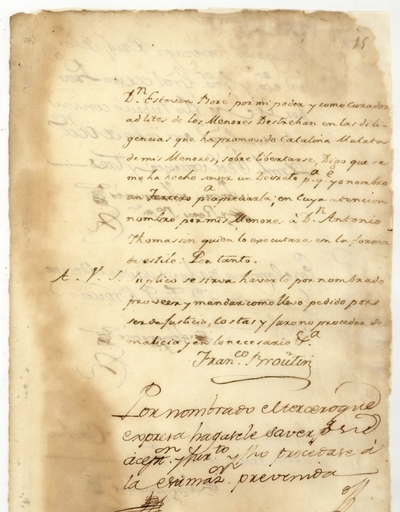 25
Dn. Estevan Boré por mi poder y como Curador
adlites de los Menores Destrehan en las dili-
gencias que ha promovido Catalina Mulata
de mis Menores, sobre libertarse, Digo que se
me ha hecho saver un Decreto pa. qe. yo nombre
un Tercero pa. apreciarla; en cuya atencion
nombro por mis Menores à Dn. Antonio
Thomassin quien lo executara en la forma
de estilo: Por tanto.
A. V. S. suplico se sirva haverlo por nombrado
proveer y mandar como llevo pedido por
ser de justicia, costas y juro no proceder de
malicia y en lo necesario &a.
Franco. Broutin
Por nombrado el tercero que
expresa hagasele saver
acepn. y jurto. y fho procedase à
la estimaon. prevenida